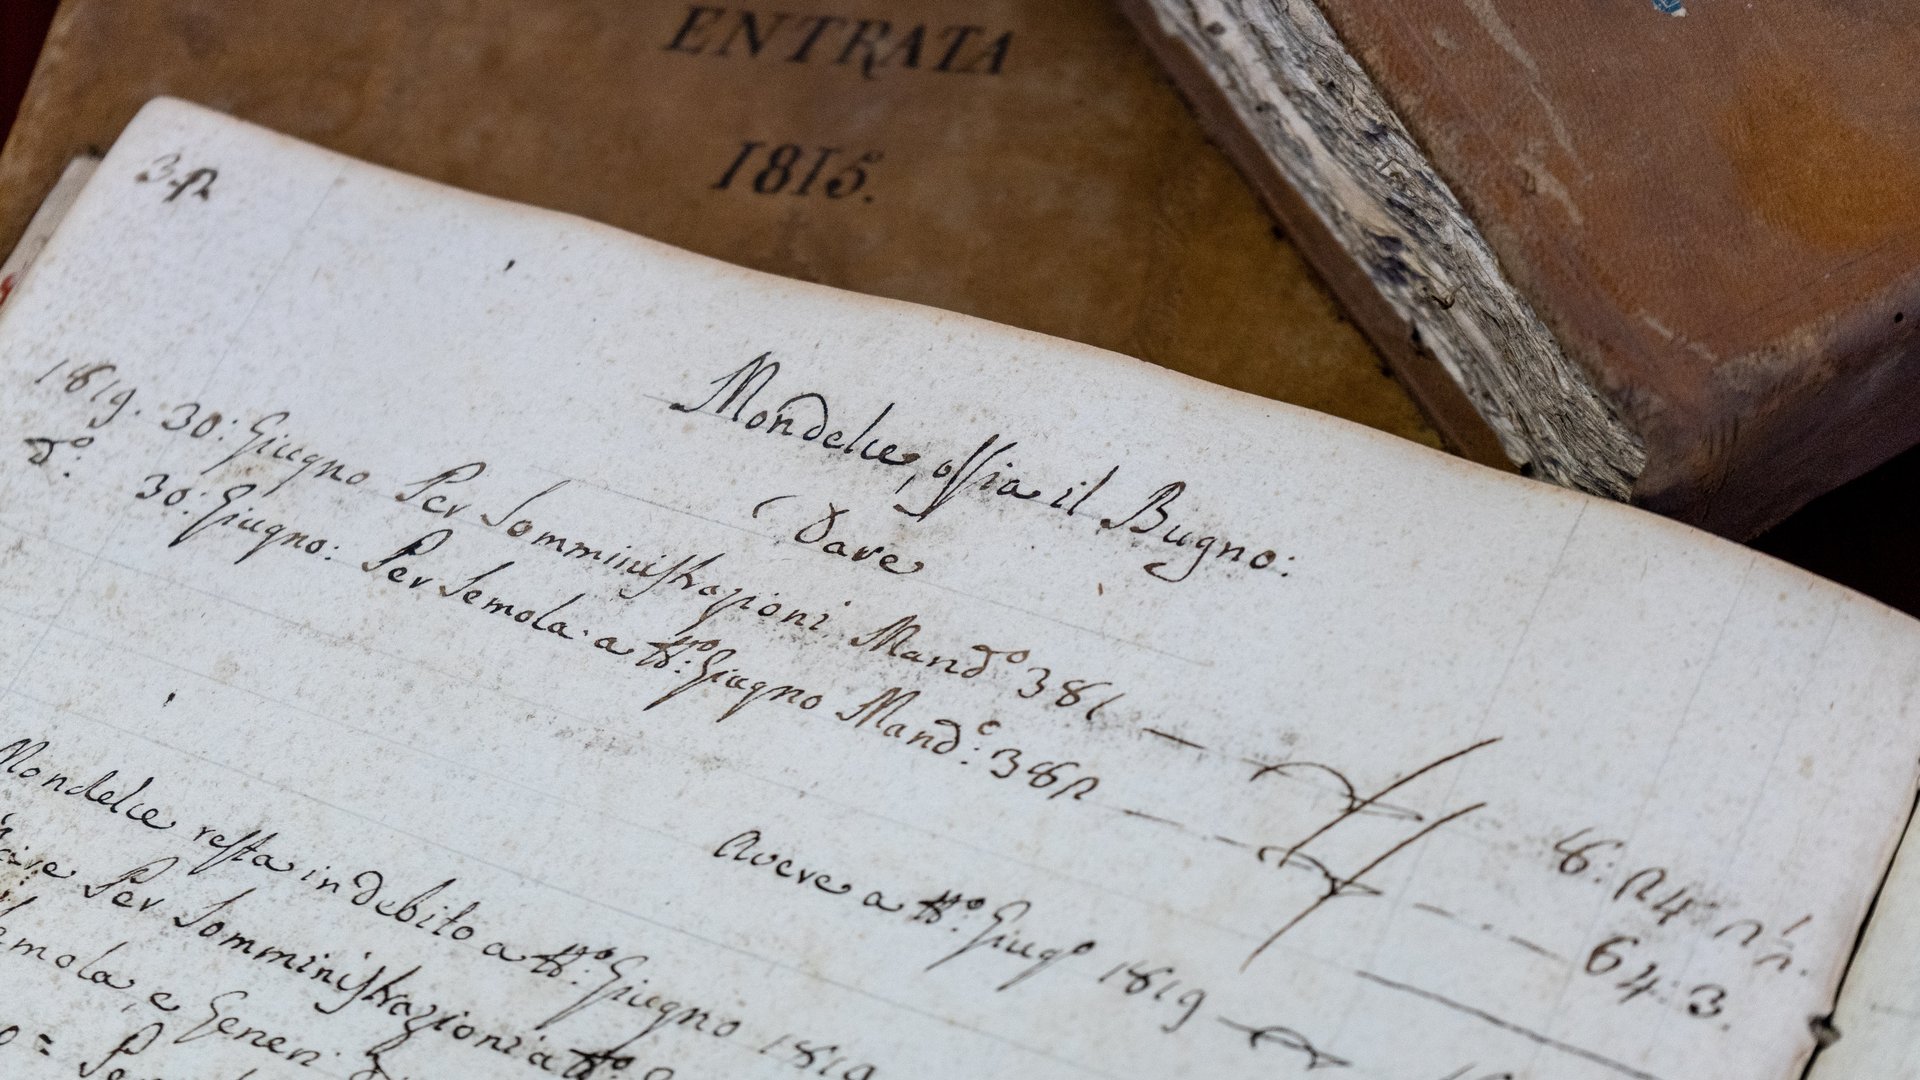 ENTRATA
1815.
Mondelce, ossia il Bugno:
Dare
1819. 30: Giugno Per Somministrazioni Mand.º 381
d.º 30: Giugno: Per Semola a tt.º: Giugno Mand.º: 382
64: 3.
Avere a tt.º: Giug.º 1819
Mondelce resta in debito a tt.º: Giugno 1819
Per Somministrazioni a tt.º
e Generi
= Per